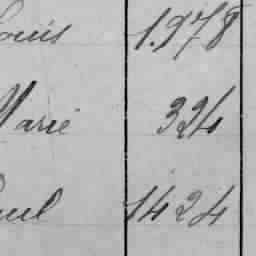 Louis 1.978
Marie 324
Paul 1424